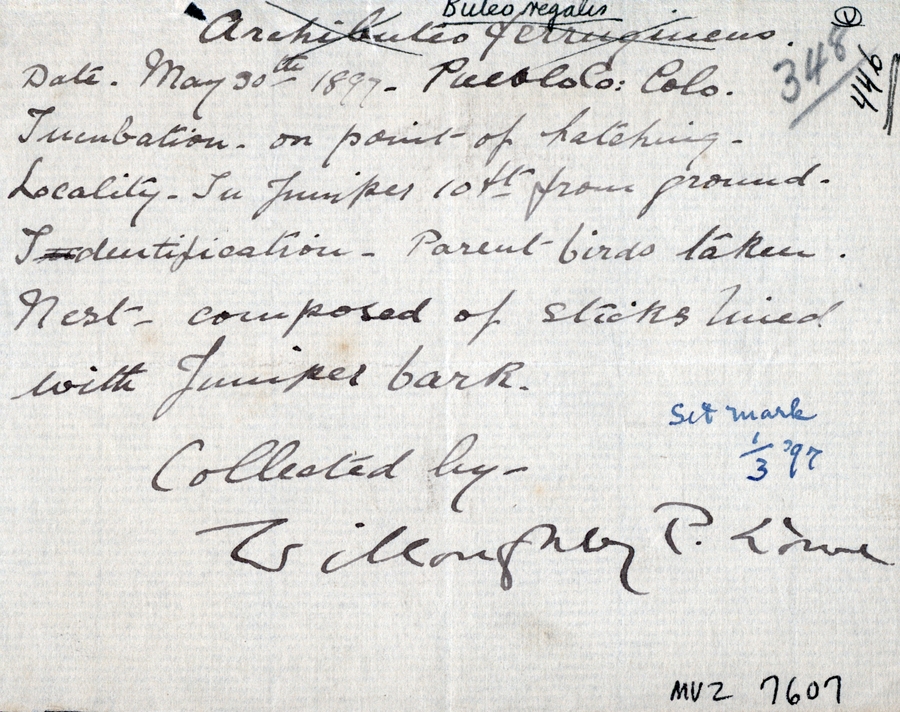 Buteo regalis
Archibuteo ferrugineus.
348
446
Date. May 30th 1897 - Pueblo Co: Colo.
Incubation - on point of hatching -
Locality - In Juniper 10 ft from ground -
Identification - Parent birds taken.
Nest - composed of sticks lined
with Juniper bark.
Set mark
1/3 '97
Collected by -
Willoughby P. Lowe
MVZ 7607